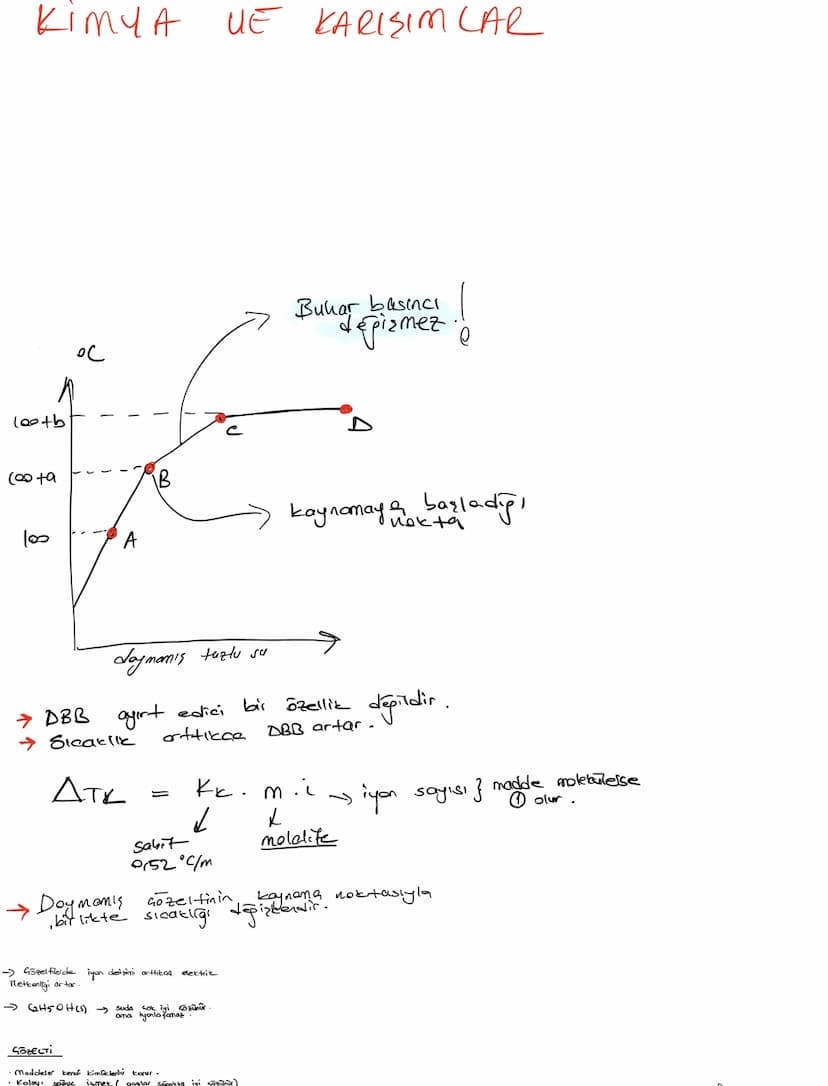 KİMYA VE KARIŞIMLAR
Buhar basıncı
değişmez !
°C
100+b
C
D
100+a
B
kaynamaya başladığı
nokta
100
A
doymamış tuzlu su
→ DBB ayırt edici bir özellik değildir.
→ Sıcaklık arttıkça DBB artar.
ΔTK = Kk. m.i → iyon sayısı } madde molekülse
① olur.
sabit
molalite
0,52 °C/m
→ Doymamış çözeltinin kaynama noktasıyla
birlikte sıcaklığı değişkendir.
→ Çözeltilerde iyon derişimi arttıkça elektrik
iletkenliği artar.
→ C2H5OH(s) → suda çok iyi çözünür.
ama iyonlaşamaz.
ÇÖZELTİ
· Maddeler kendi kimliklerini korur.